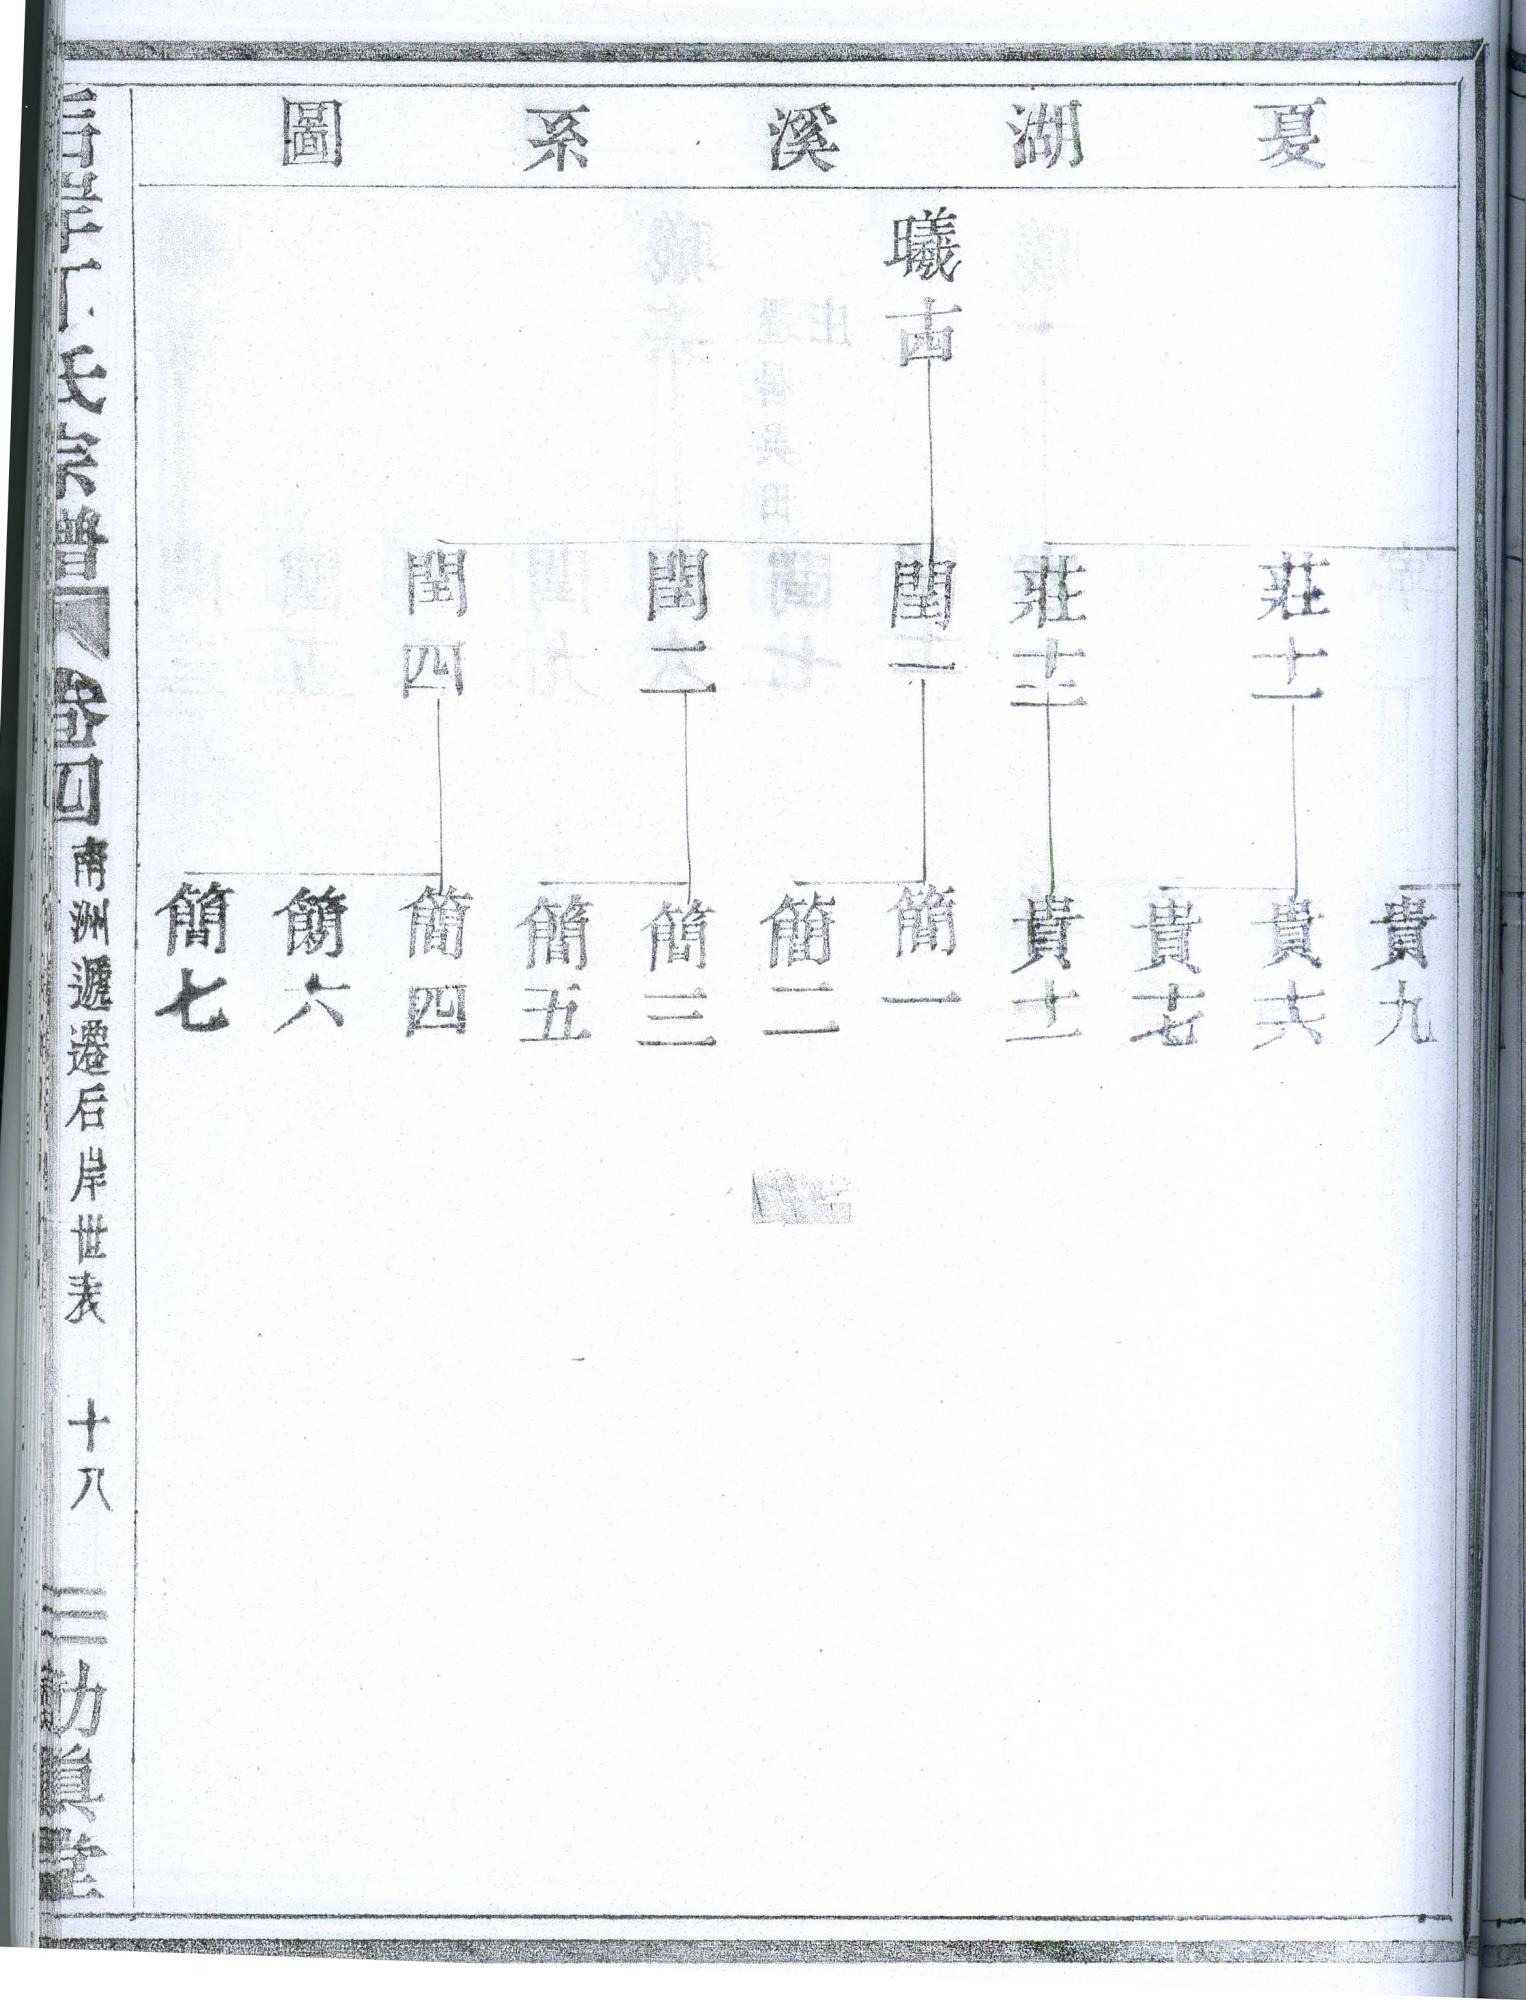 夏湖溪系圖
曦十四
莊十一
莊十二
閏一
閏二
閏四
貴九
貴十六
貴十七
貴十一
簡一
簡二
簡三
簡五
簡四
簡六
簡七
后岸丁氏宗譜
卷四
南洲遞遷后岸世表
十八
三
勛真堂